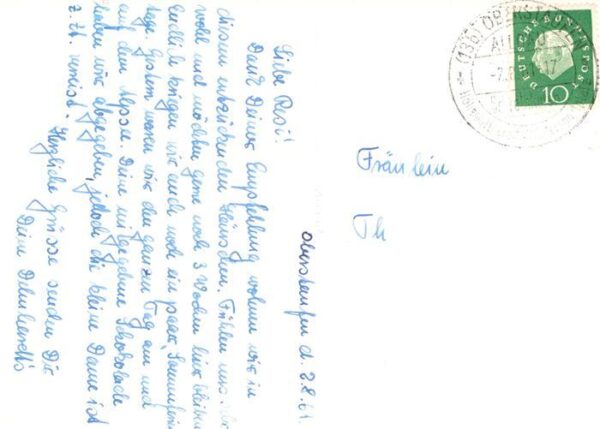 Oberstaufen d. 2.8.61.
Liebe Resi!
Dank Deiner Empfehlung wohnen wir in
diesem entzückenden Häuschen. Fühlen uns
wohl und möchten gerne noch 3 Wochen hier bleiben.
Endlich kriegen wir auch noch ein paar
Gestern waren wir den ganzen Tag am und
auf dem Alpsee. Deine mitgegebene Schokolade
haben wir abgegeben, jedoch die kleine Dame ist
z.Zt. verreist. Herzliche Grüsse senden Dir
Deine
Fräulein
Th
DEUTSCHE BUNDESPOST
10
(13b) OBERSTAUFEN